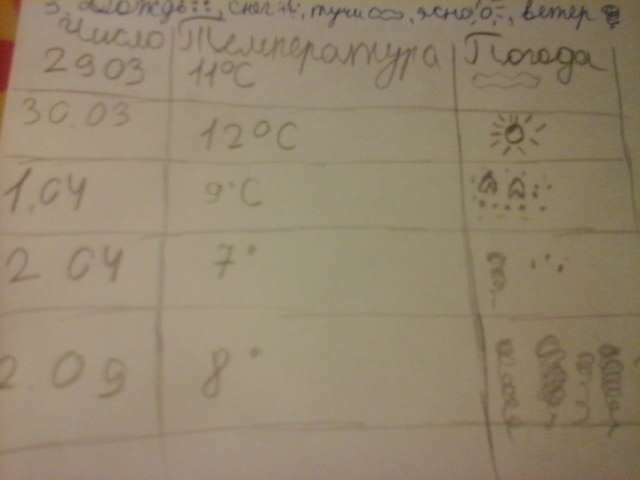 дождь, снег, тучи, ясно, ветер
Число Температура Погода
29 03 11°C
30.03 12°C
1.04 9°C
2 04 7°
2.09 8°